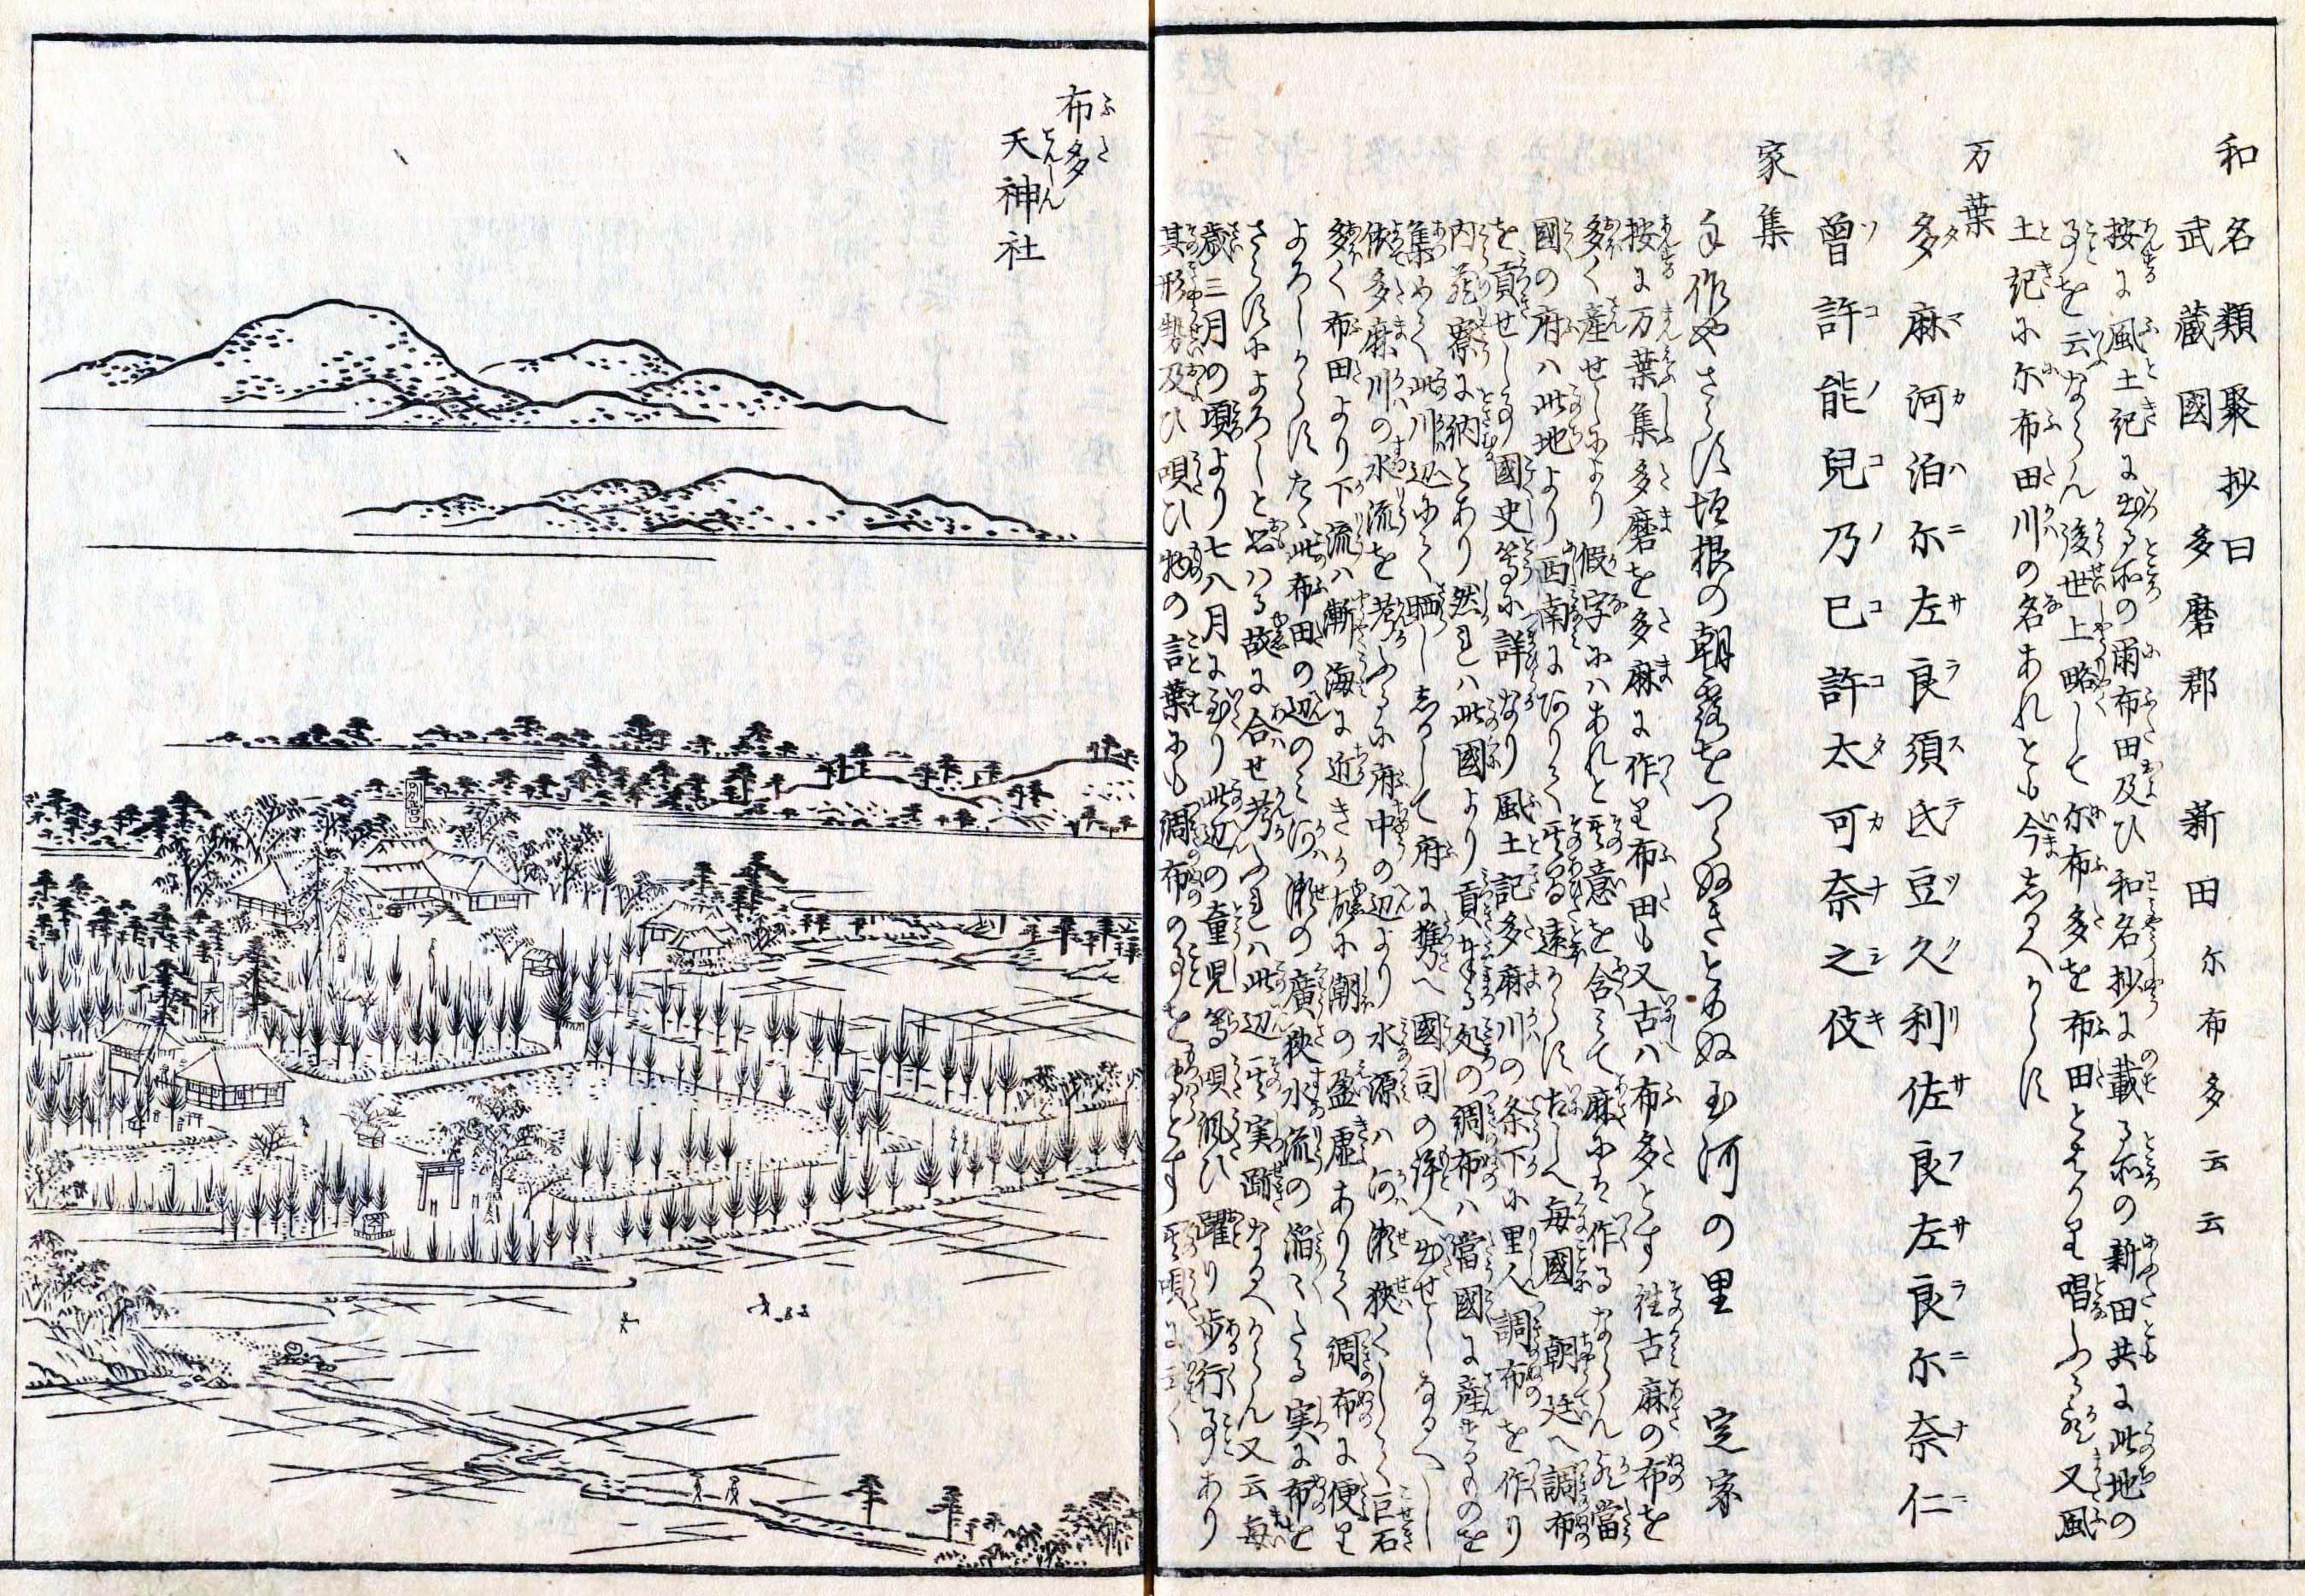 和名類聚抄曰
武蔵國　多磨郡　新田　尓布多云云
按に風土記に出る所の爾布田及ひ和名抄に載る所の新田共に此地の
事を云ならん後世上略して尓布多を布田とはかり唱ふる歟又風
土記に尓布田川の名あれとも今しるへからす
万葉
多麻河泊尓左良須氐豆久利佐良左良尓奈仁
曾許能兒乃己許太可奈之伎
家集
手作やさらす垣根の朝露をつらぬきとめぬ玉河の里　定家
按に万葉集多磨を多麻に作り布田も又古ハ布多とす往古麻の布を
多く産せしにより假字にハあれと其意を含みて麻にハ作るならん歟當
國の府ハ此地より西南にありて其間遠からす古しへ毎國　朝廷へ調布
を貢せし事國史等に詳なり風土記多麻川の条下に里人調布を作り
内蔵寮に納とあり然れハ此國より貢する処の調布ハ當國に産するものを
集めて此川辺にて晒ししかして府に携へ國司の許へ出せしなるへし
依多麻川の水流を考ふるに府中の辺より水源ハ河瀬狭くして巨石
多く布田より下流ハ漸海に近きか故に潮の盈虚ありて調布に便り
よろしからすたゝ此布田の辺のミ河瀬の廣狭水流の滔々たる実に布を
さらすによろしと思ハる故に合せ考ふれハ此辺其実跡なるへからん又云毎
歳三月の頃より七八月に至り此辺の童児等唄諷ひ躍り歩行事あり
其形勢及ひ唄ひ物の言葉にも調布の事をもとゝす其唄に云く
布多
天神社
別當
天神